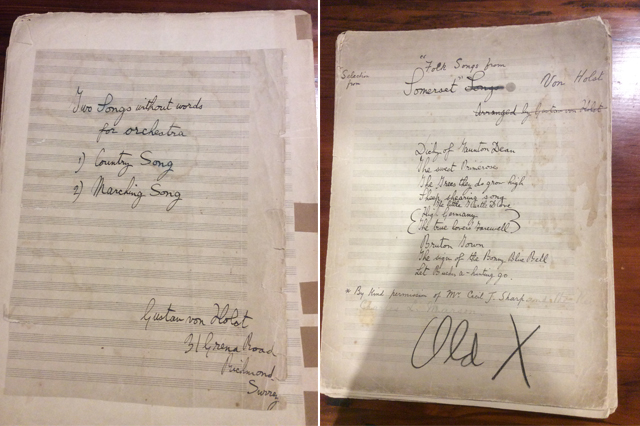 Two Songs without words
for orchestra
1) Country Song
2) Marching Song
Gustav von Holst
31 Grena Road
Richmond
Surrey
"Folk Songs from
Selection from
Somerset" Songs
Von Holst
Arranged by Gustav von Holst
Dicky of Taunton Dean
The sweet Primrose
The Trees they do grow high
Sheep shearing song
High Germany
The true lovers Farewell
Bruton Town
The sign of the Bonny Blue Bell
Let a-hunting go
" By Kind permission of Mr. Cecil J. Sharp
Old X